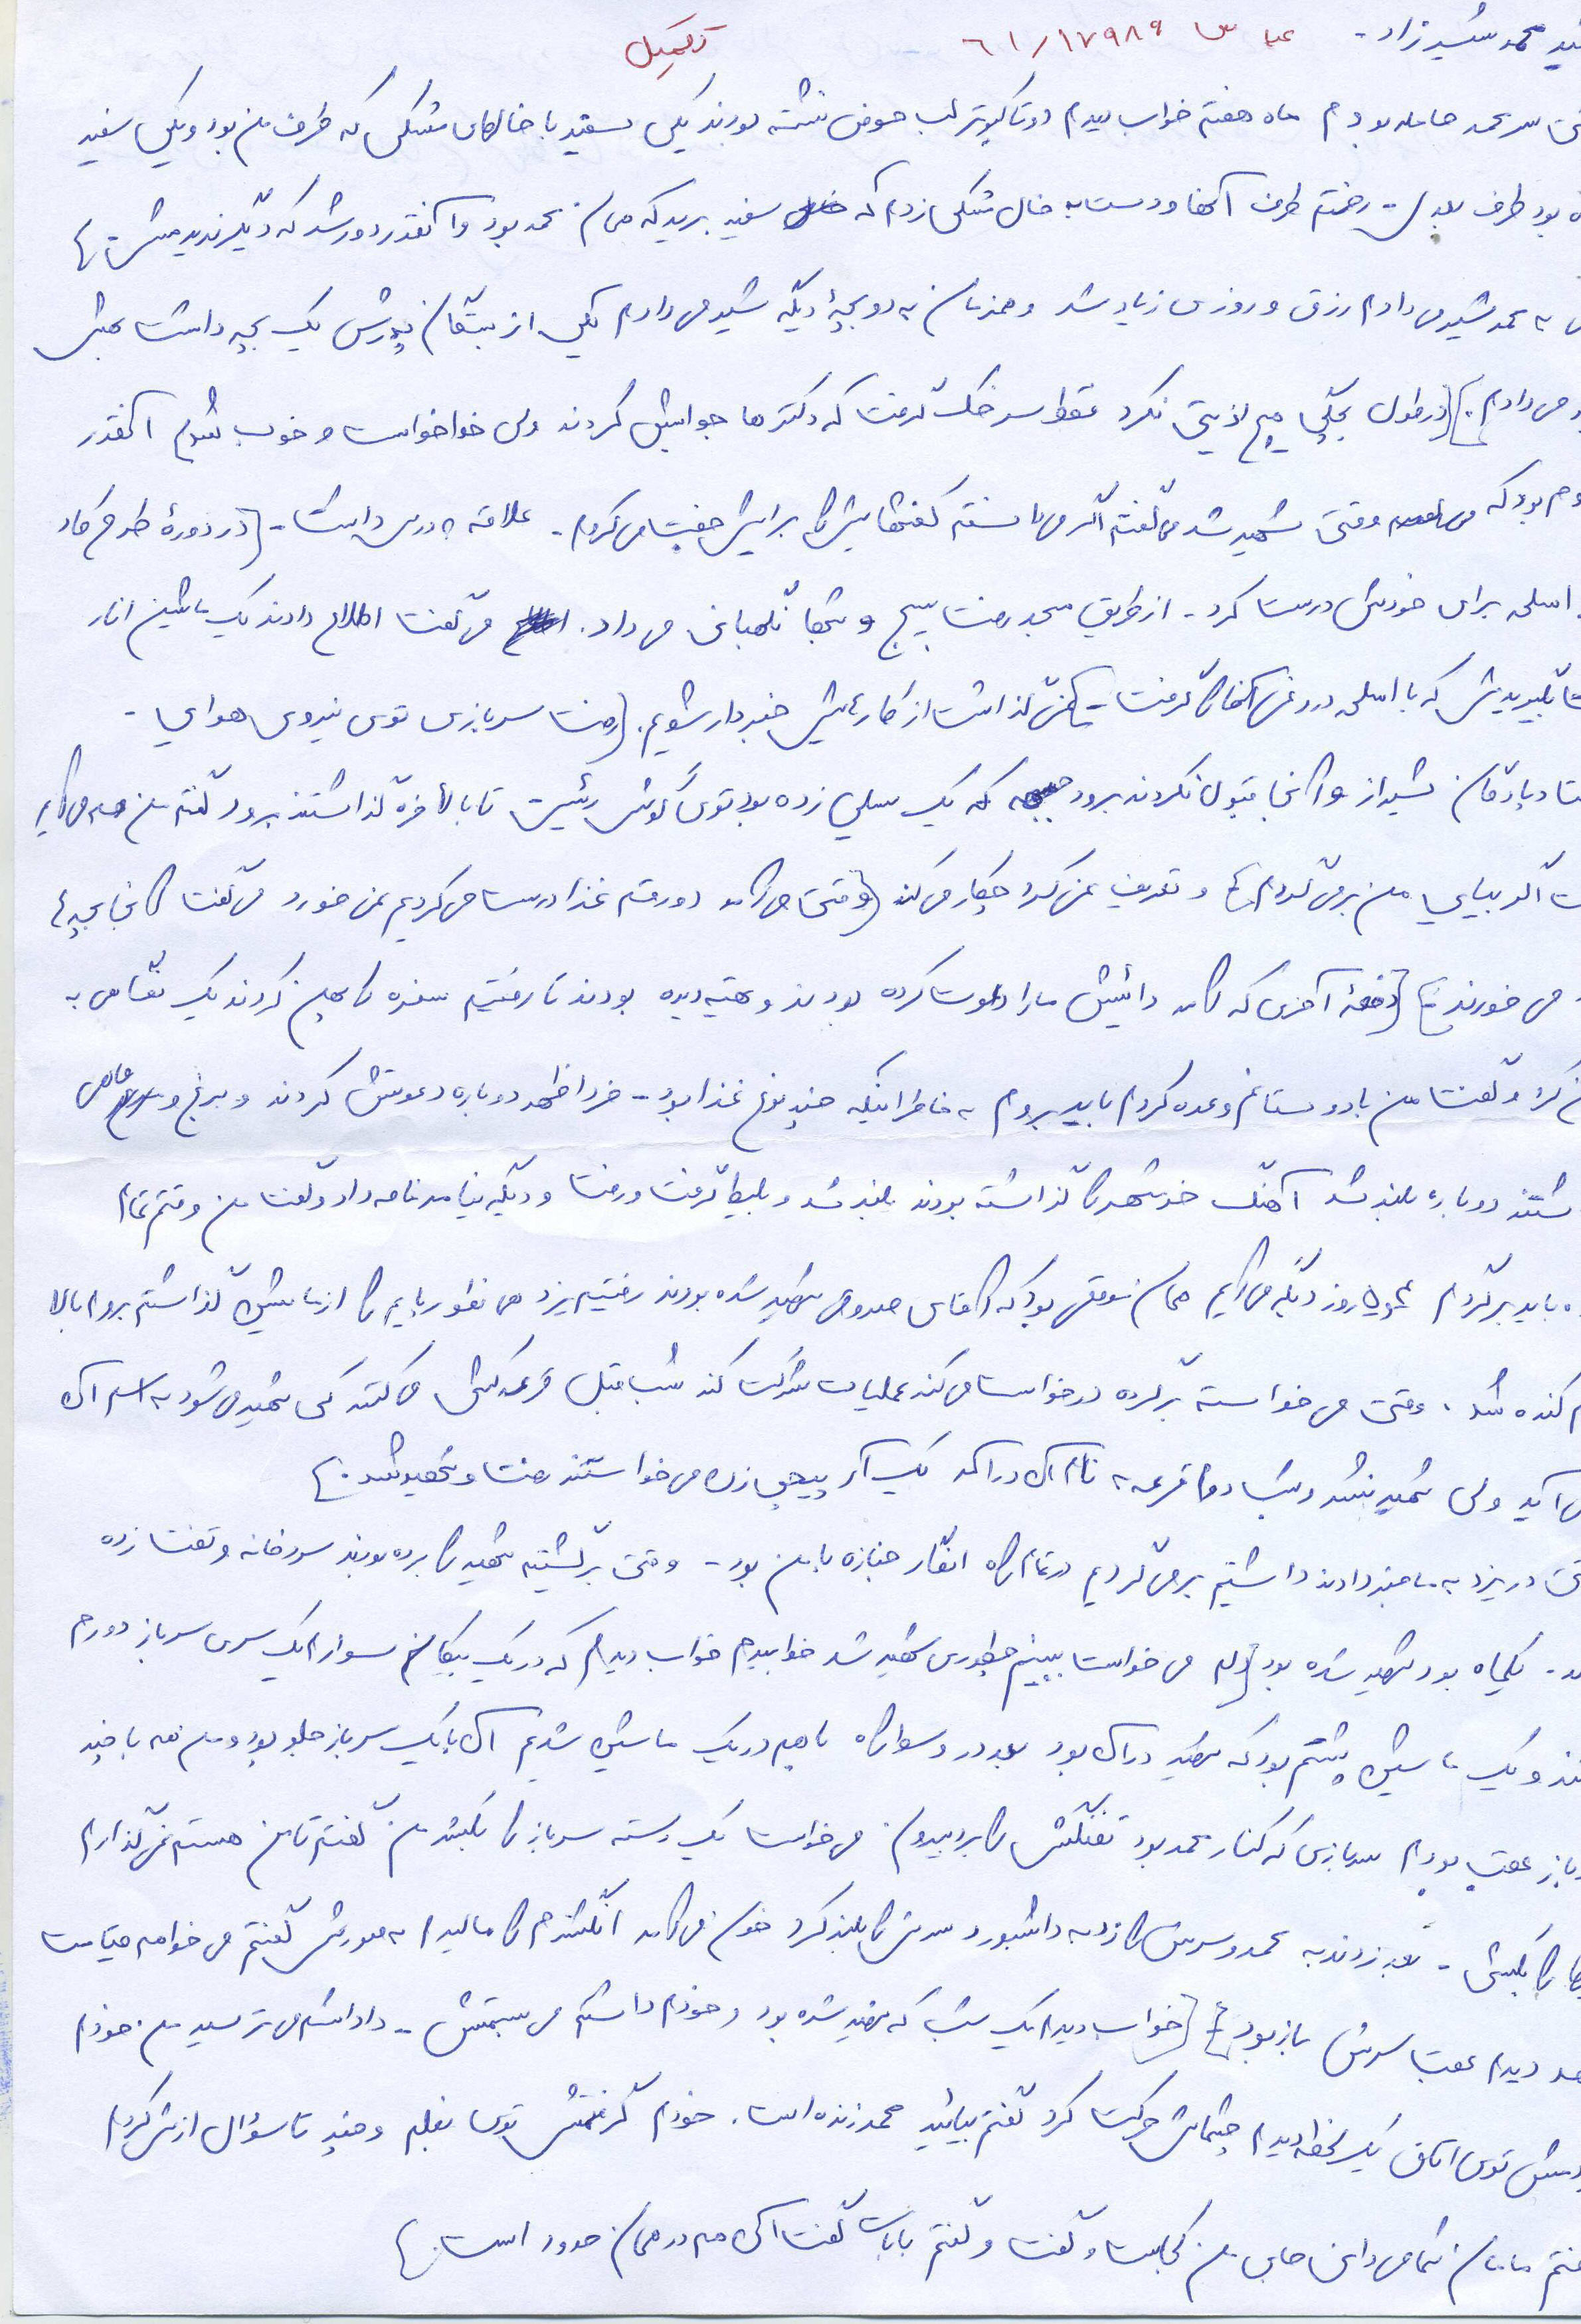 شهید محمد شیرزاد - ۶۱/۱۷۹۸۹ تکمیل
سر محمد حامله بودم ماه هفتم خواب دیدم دو تا کبوتر لب حوض نشسته بودند یکی سفید با خالهای مشکی که طرف من بود و یکی سفید
بود طرف رفتم طرف آنها و دست به خال مشکی زدم که سفید پرید که همان محمد بود و آنقدر دور شد که دیگر ندیدمش
به محمد شیر می دادم رزق و روزی زیاد شد و همزمان به دو بچۀ دیگه شیر می دادم یکی از پدرش یک بچه داشت بهش
می دادم. در طول بچگی هیچ اذیتی نکرد فقط سرخک گرفت که دکترها جوابش کردند ولی خدا خواست و خوب شد آنقدر
بود که وقتی شهید شد می گفتم اگر می دانستم کفشهایش را برایش جفت می کردم - علاقه به درس داشت - در دورۀ طرح کاد
اسلحه برای خودش درست کرد - از طریق مسجد رفت بسیج و شبها نگهبانی می داد. می گفت اطلاع دادند یک ماشین انار
بگیریدش که با اسلحه دروغی آنها را گرفت - نمی گذاشت از کارهایش خبردار شویم. رفت سربازی توی نیروی هوایی -
پادگان شیراز و آنجا قبول نکردند برود که یک سیلی زده بود توی گوش رئیس تا بالاخره گذاشتند برود گفتم من هم می آیم
اگر بیایی من برمی گردم و تعریف نمی کرد چکار می کند وقتی می آمد دو رقم غذا درست می کردیم نمی خورد می گفت آنجا بچه ها
می خورند دفعۀ آخری که آمد دائیش ما را دعوت کرده بودند و تهیه دیده بودند تا رفتیم سفره را پهن کردند یک نگاهی به
کرد و گفت من با دوستانم وعده کردم باید بروم به خاطر اینکه چند نوع غذا بود - فردا ظهر دوباره دعوتش کردند و مرغ و ماهی
دوباره بلند شد آهنگ خرمشهر را گذاشته بودند بلند شد و بلیط گرفت و رفت و دیگه نیامد نامه داد و گفت من وقتم تمام
باید برگردم روز دیگه می آیم همان موقعی بود که آقای صدوقی شهید شده بودند رفتیم یزد همینطور پایم را از ماشین گذاشتم بروم بالا
کنده شد. وقتی می خواسته برگرده درخواست می کند عملیات شرکت کند شب قبل قرعه کشی می کنند کی شهید می شود به اسم آن
می آید ولی شهید نشد و شب دوم قرعه به نام آن درآمد یک آر پی جی زن می خواستند رفت و شهید شد.
در یزد به ما خبر دادند داشتیم برمی گردیم در تمام راه انگار جنازه با من بود - وقتی برگشتیم شهید را برده بودند سردخانه و نفت زده
یکماه بود شهید شده بود دلم می خواست ببینم چطوری شهید شد خوابیدم خواب دیدم که در یک پیکان سوارم یک سری سرباز دورم
و یک ماشین پشتم بود که شهید در آن بود بعد در دو سوار راه باهم در یک ماشین شدیم آن با یک سرباز جلو بود و من هم با چند
سرباز عقب بودم سربازی که کنار محمد بود تفنگش را برد بیرون می خواست یک دسته سرباز را بکشد من گفتم تا من هستم نمی گذارم
را بکشی - تیر زدند به محمد و سرش را زد به داشبورد سرش را بلند کرد خون می آمد انگشترم را مالیدم به صورتش گفتم می خواهم قیامت
دیدم عقب سرش باز بود خواب دیدم یک شب که شهید شده بود و خودم داشتم می شستمش - داداشم می ترسید من خودم
توی اتاق یک لحظه دیدم چشمانش حرکت کرد گفتم بیائید محمد زنده است. خودم گرفتمش توی بغلم و چند تا سؤال ازش کردم
مامان شما می دانی جای من کجاست و گفت و گفتم بابات گفت آن هم در همان حدود است.